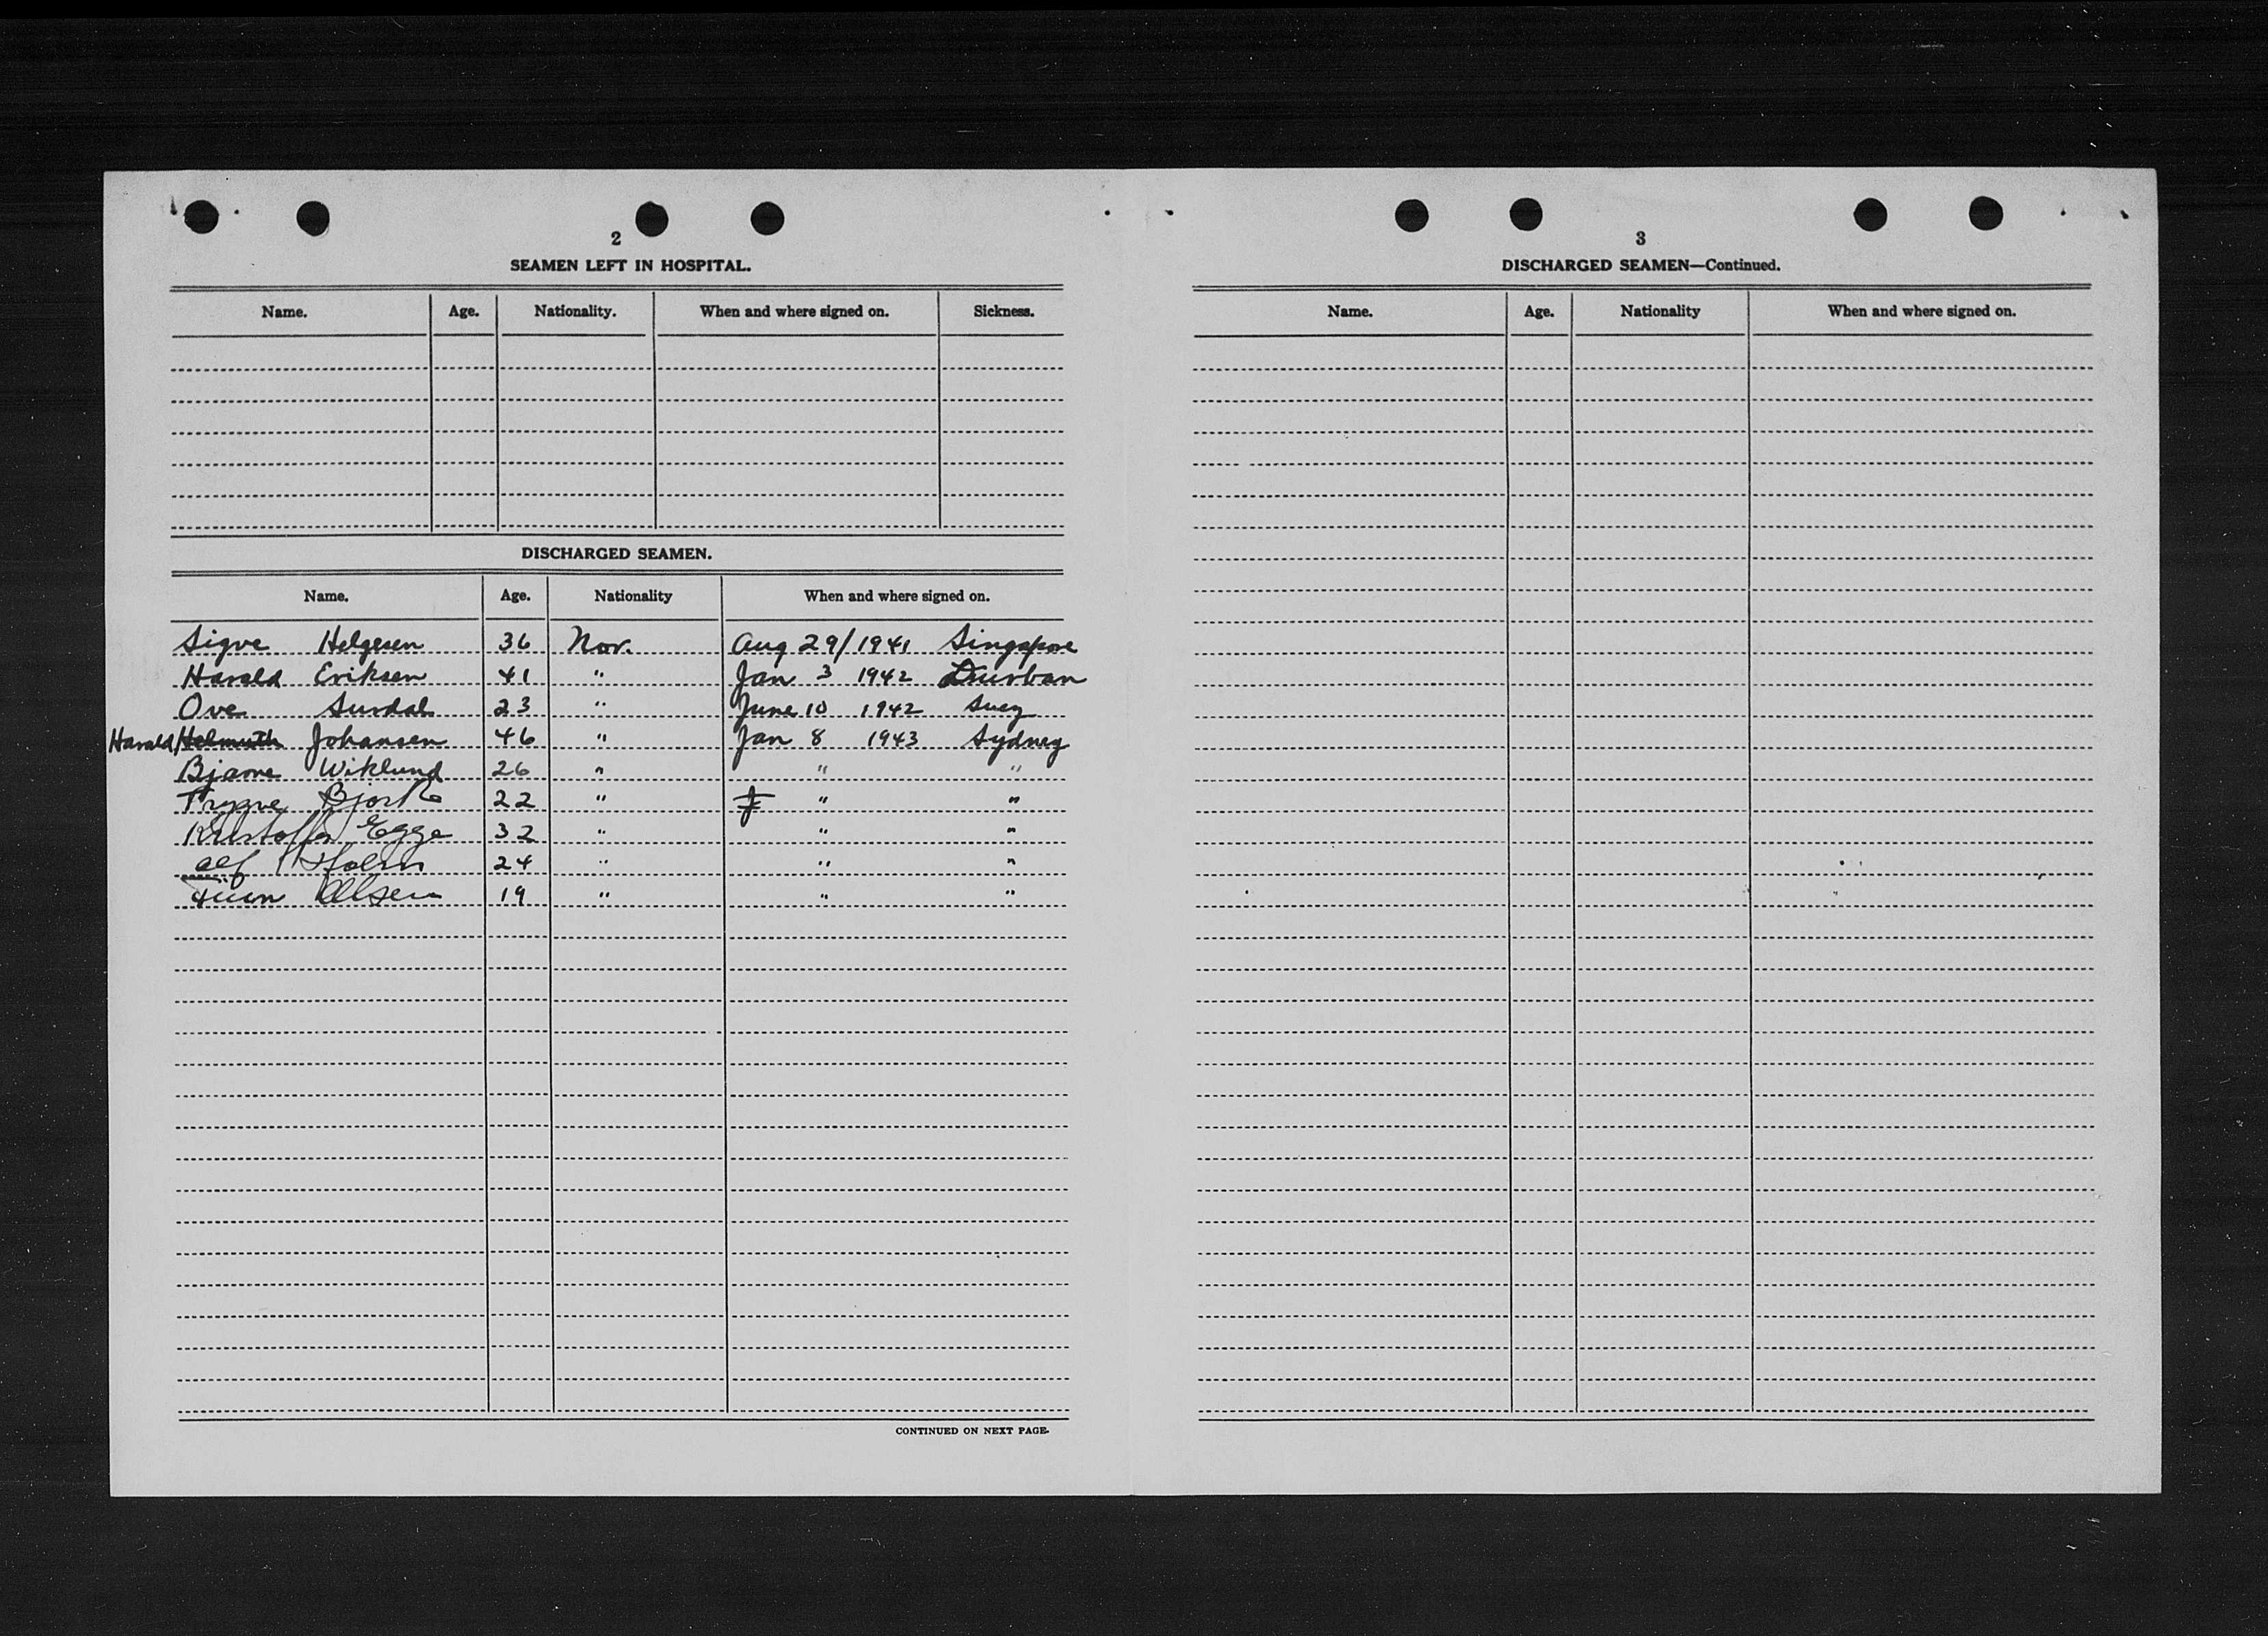 2
SEAMEN LEFT IN HOSPITAL.
Name. Age. Nationality. When and where signed on. Sickness.
DISCHARGED SEAMEN.
Name. Age. Nationality When and where signed on.
Sigve Helgesen 36 Nor. Aug 29/1941 Singapore
Harald Eriksen 41 " Jan 3 1942 Durban
Ove Surdal 23 " June 10 1942 Suez
Harald/Helmuth Johansen 46 " Jan 8 1943 Sydney
Bjarne Wiklund 26 " " "
Trygve Bjork 22 " " "
Kristoffer Egge 32 " " "
Alf Holm 24 " " "
Finn Olsen 19 " " "
CONTINUED ON NEXT PAGE.
3
DISCHARGED SEAMEN—Continued.
Name. Age. Nationality When and where signed on.